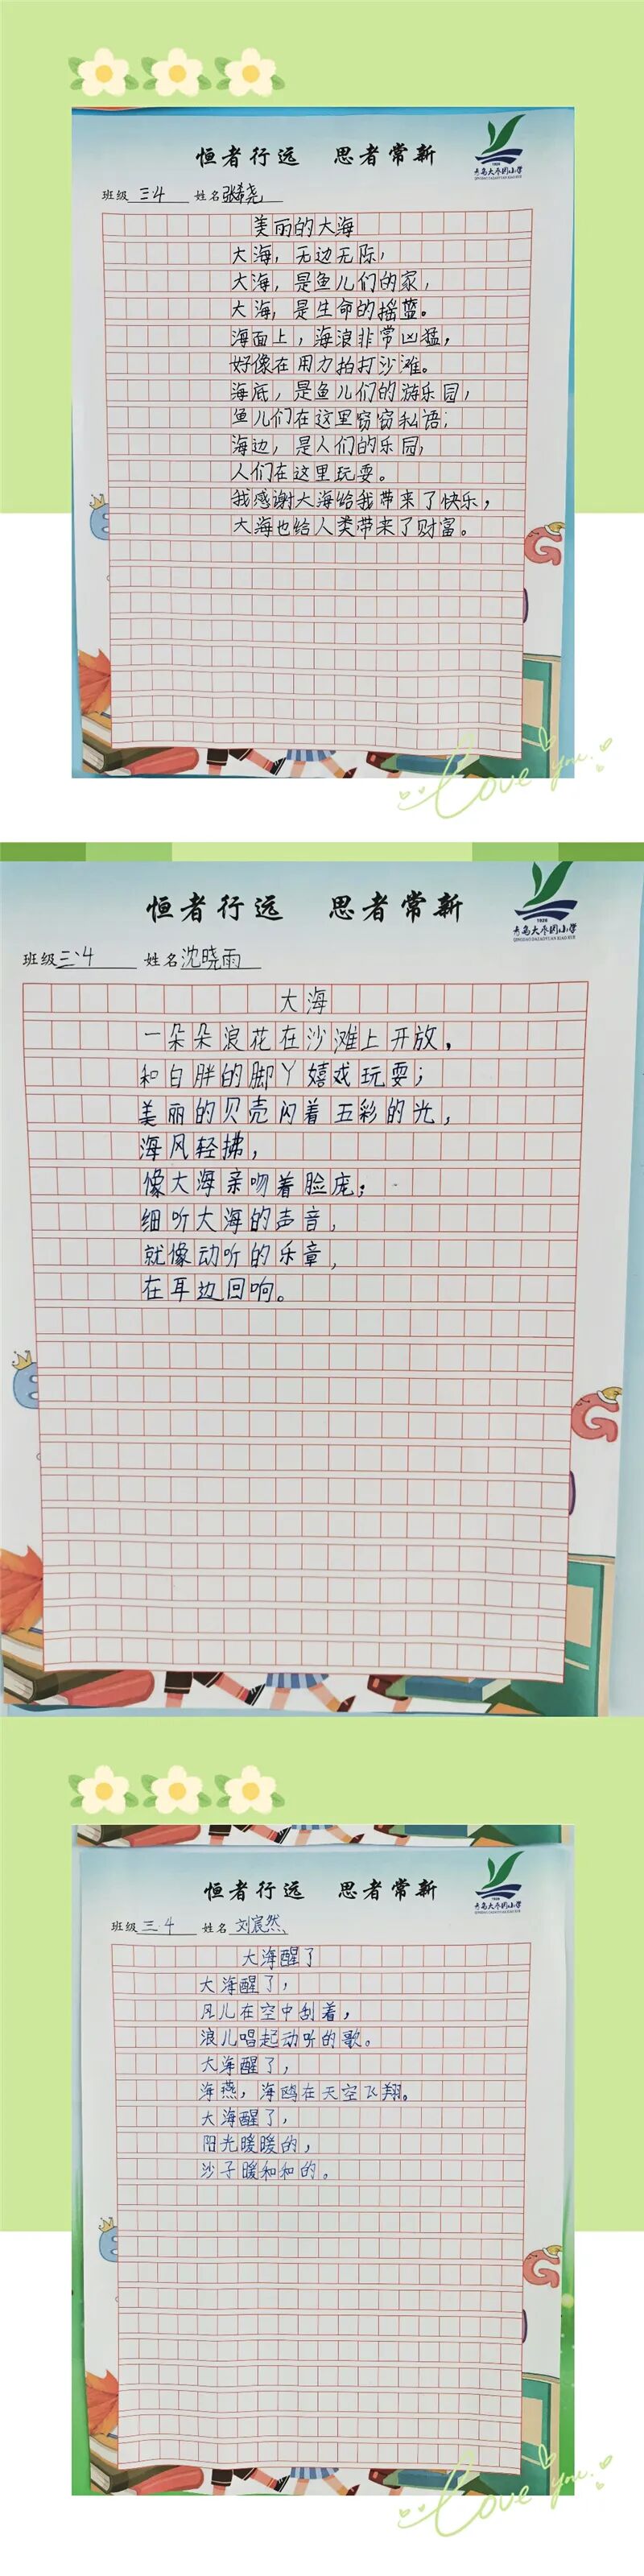 恒者行远 思者常新
青岛大枣园小学
班级 三4 姓名 张希尧
美丽的大海
大海，无边无际，
大海，是鱼儿们的家，
大海，是生命的摇蓝。
海面上，海浪非常凶猛，
好像在用力拍打沙滩。
海底，是鱼儿们的游乐园，
鱼儿们在这里窃窃私语；
海边，是人们的乐园，
人们在这里玩耍。
我感谢大海给我带来了快乐，
大海也给人类带来了财富。
Love you.
恒者行远 思者常新
1926
青岛大枣园小学
QINGDAO DAZAOYUAN XIAO XUE
班级 三、4 姓名 沈晓雨
大海
一朵朵浪花在沙滩上开放，
和白胖的脚丫嬉戏玩耍；
美丽的贝壳闪着五彩的光，
海风轻拂，
像大海亲吻着脸庞；
细听大海的声音，
就像动听的乐章，
在耳边回响。
恒者行远 思者常新
青岛大枣园小学
班级 三.4 姓名 刘宸然
大海醒了
大海醒了，
风儿在空中刮着，
浪儿唱起动听的歌。
大海醒了，
海燕，海鸥在天空飞翔。
大海醒了，
阳光暖暖的，
沙子暖和和的。
Love you.